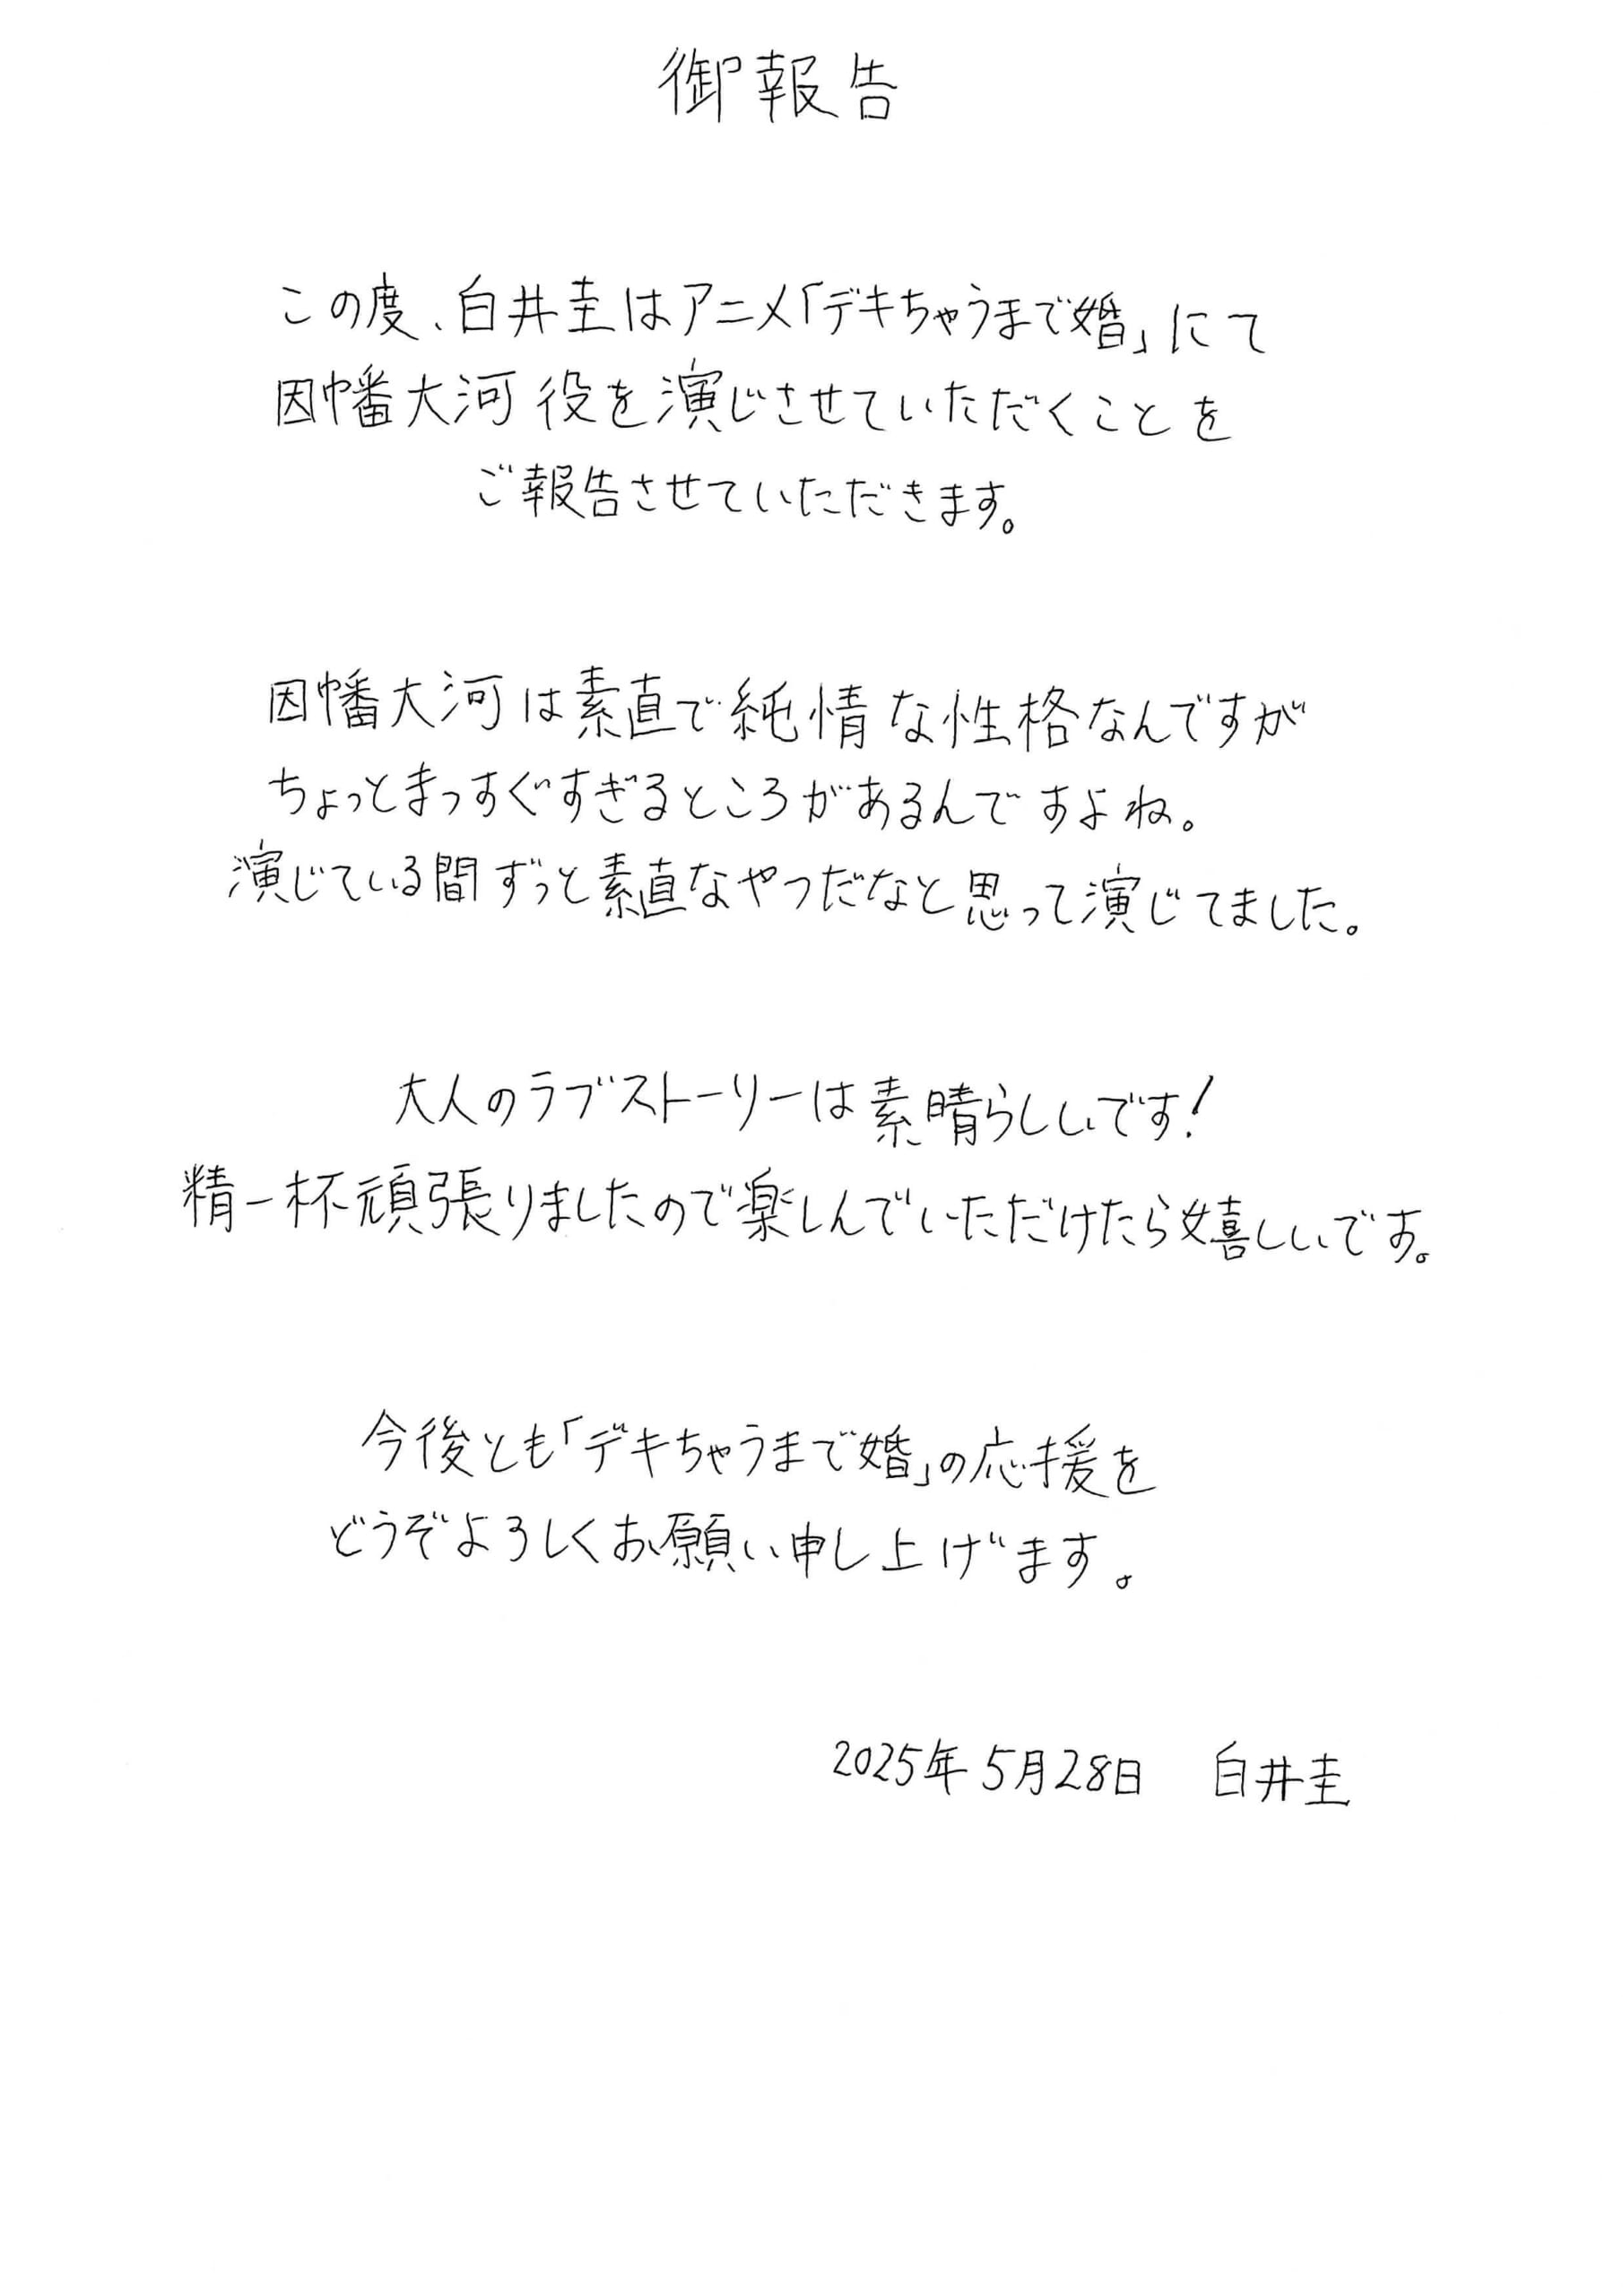 御報告
この度、白井圭はアニメ「デキちゃうまで婚」にて
因幡大河役を演じさせていただくことを
ご報告させていただきます。
因幡大河は素直で純情な性格なんですが
ちょっとまっすぐすぎるところがあるんですよね。
演じている間ずっと素直なやつだなと思って演じてました。
大人のラブストーリーは素晴らしいです!
精一杯頑張りましたので楽しんでいただけたら嬉しいです。
今後とも「デキちゃうまで婚」の応援を
どうぞよろしくお願い申し上げます。
2025年5月28日 白井圭